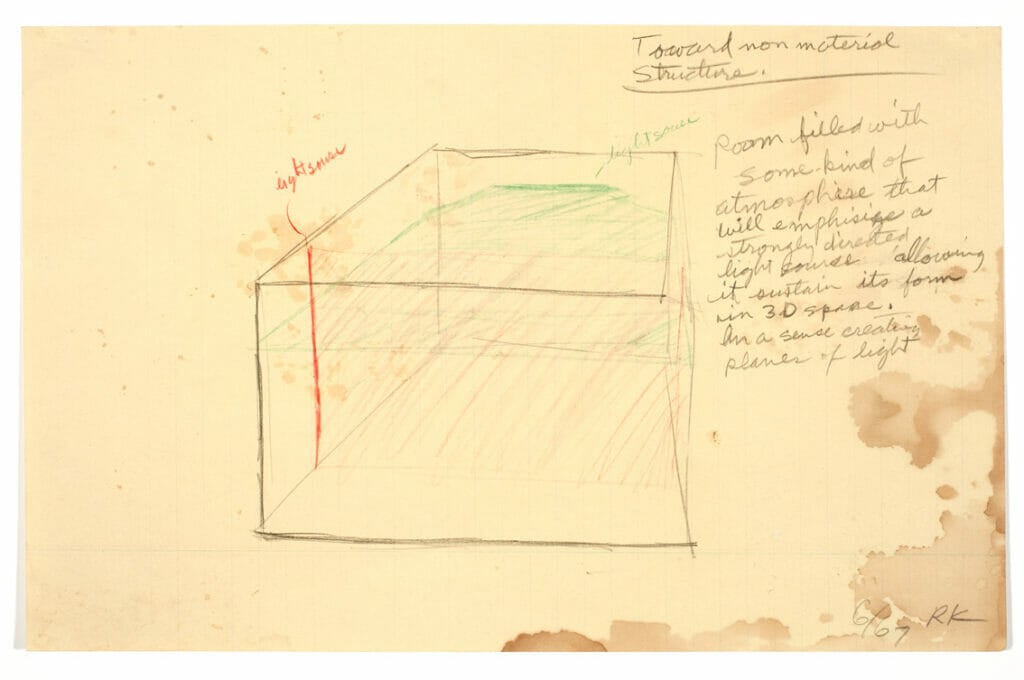 Toward non material
Structure.
light sourse
light sourse
Room filled with
some kind of
atmosphere that
will emphisize a
strongly directed
light sourse allowing
it sustain its form
in 3D space.
In a sense creating
planes of light
6/67 RK